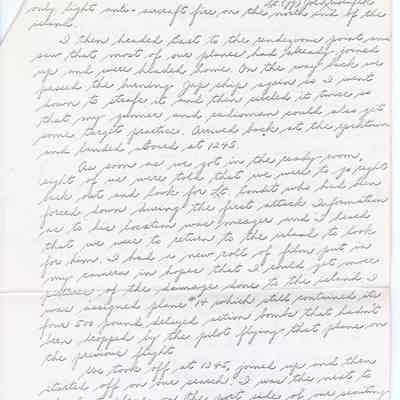 only light anti-aircraft fire on the north end of the
island.
I then headed East to the rendezvous point and
saw that most of our planes had already joined
up and were headed home. On the way back we
passed the burning Jap ship again so I went
down to strafe it and then circled it twice so
that my gunner and radioman could also get
some target practice. Arrived back at the Yorktown
and landed aboard at 1245.
As soon as we got in the ready-room,
eight of us were told that we were to go right
back out and look for Lt. who had been
forced down during the first attack. Information
as to his location was meager and I heard
that we were to return to the island to look
for him. I had a new roll of film put in
my camera in hopes that I could get more
pictures of the damage done to the island. I
was assigned plane #14 which still contained its
four 500 pound delayed action bombs that hadn't
been dropped by the pilot flying that plane on
the previous flight.
We took off at 1345, joined up and then
started off on our search. I was the next to
plane on the port side of our scouting